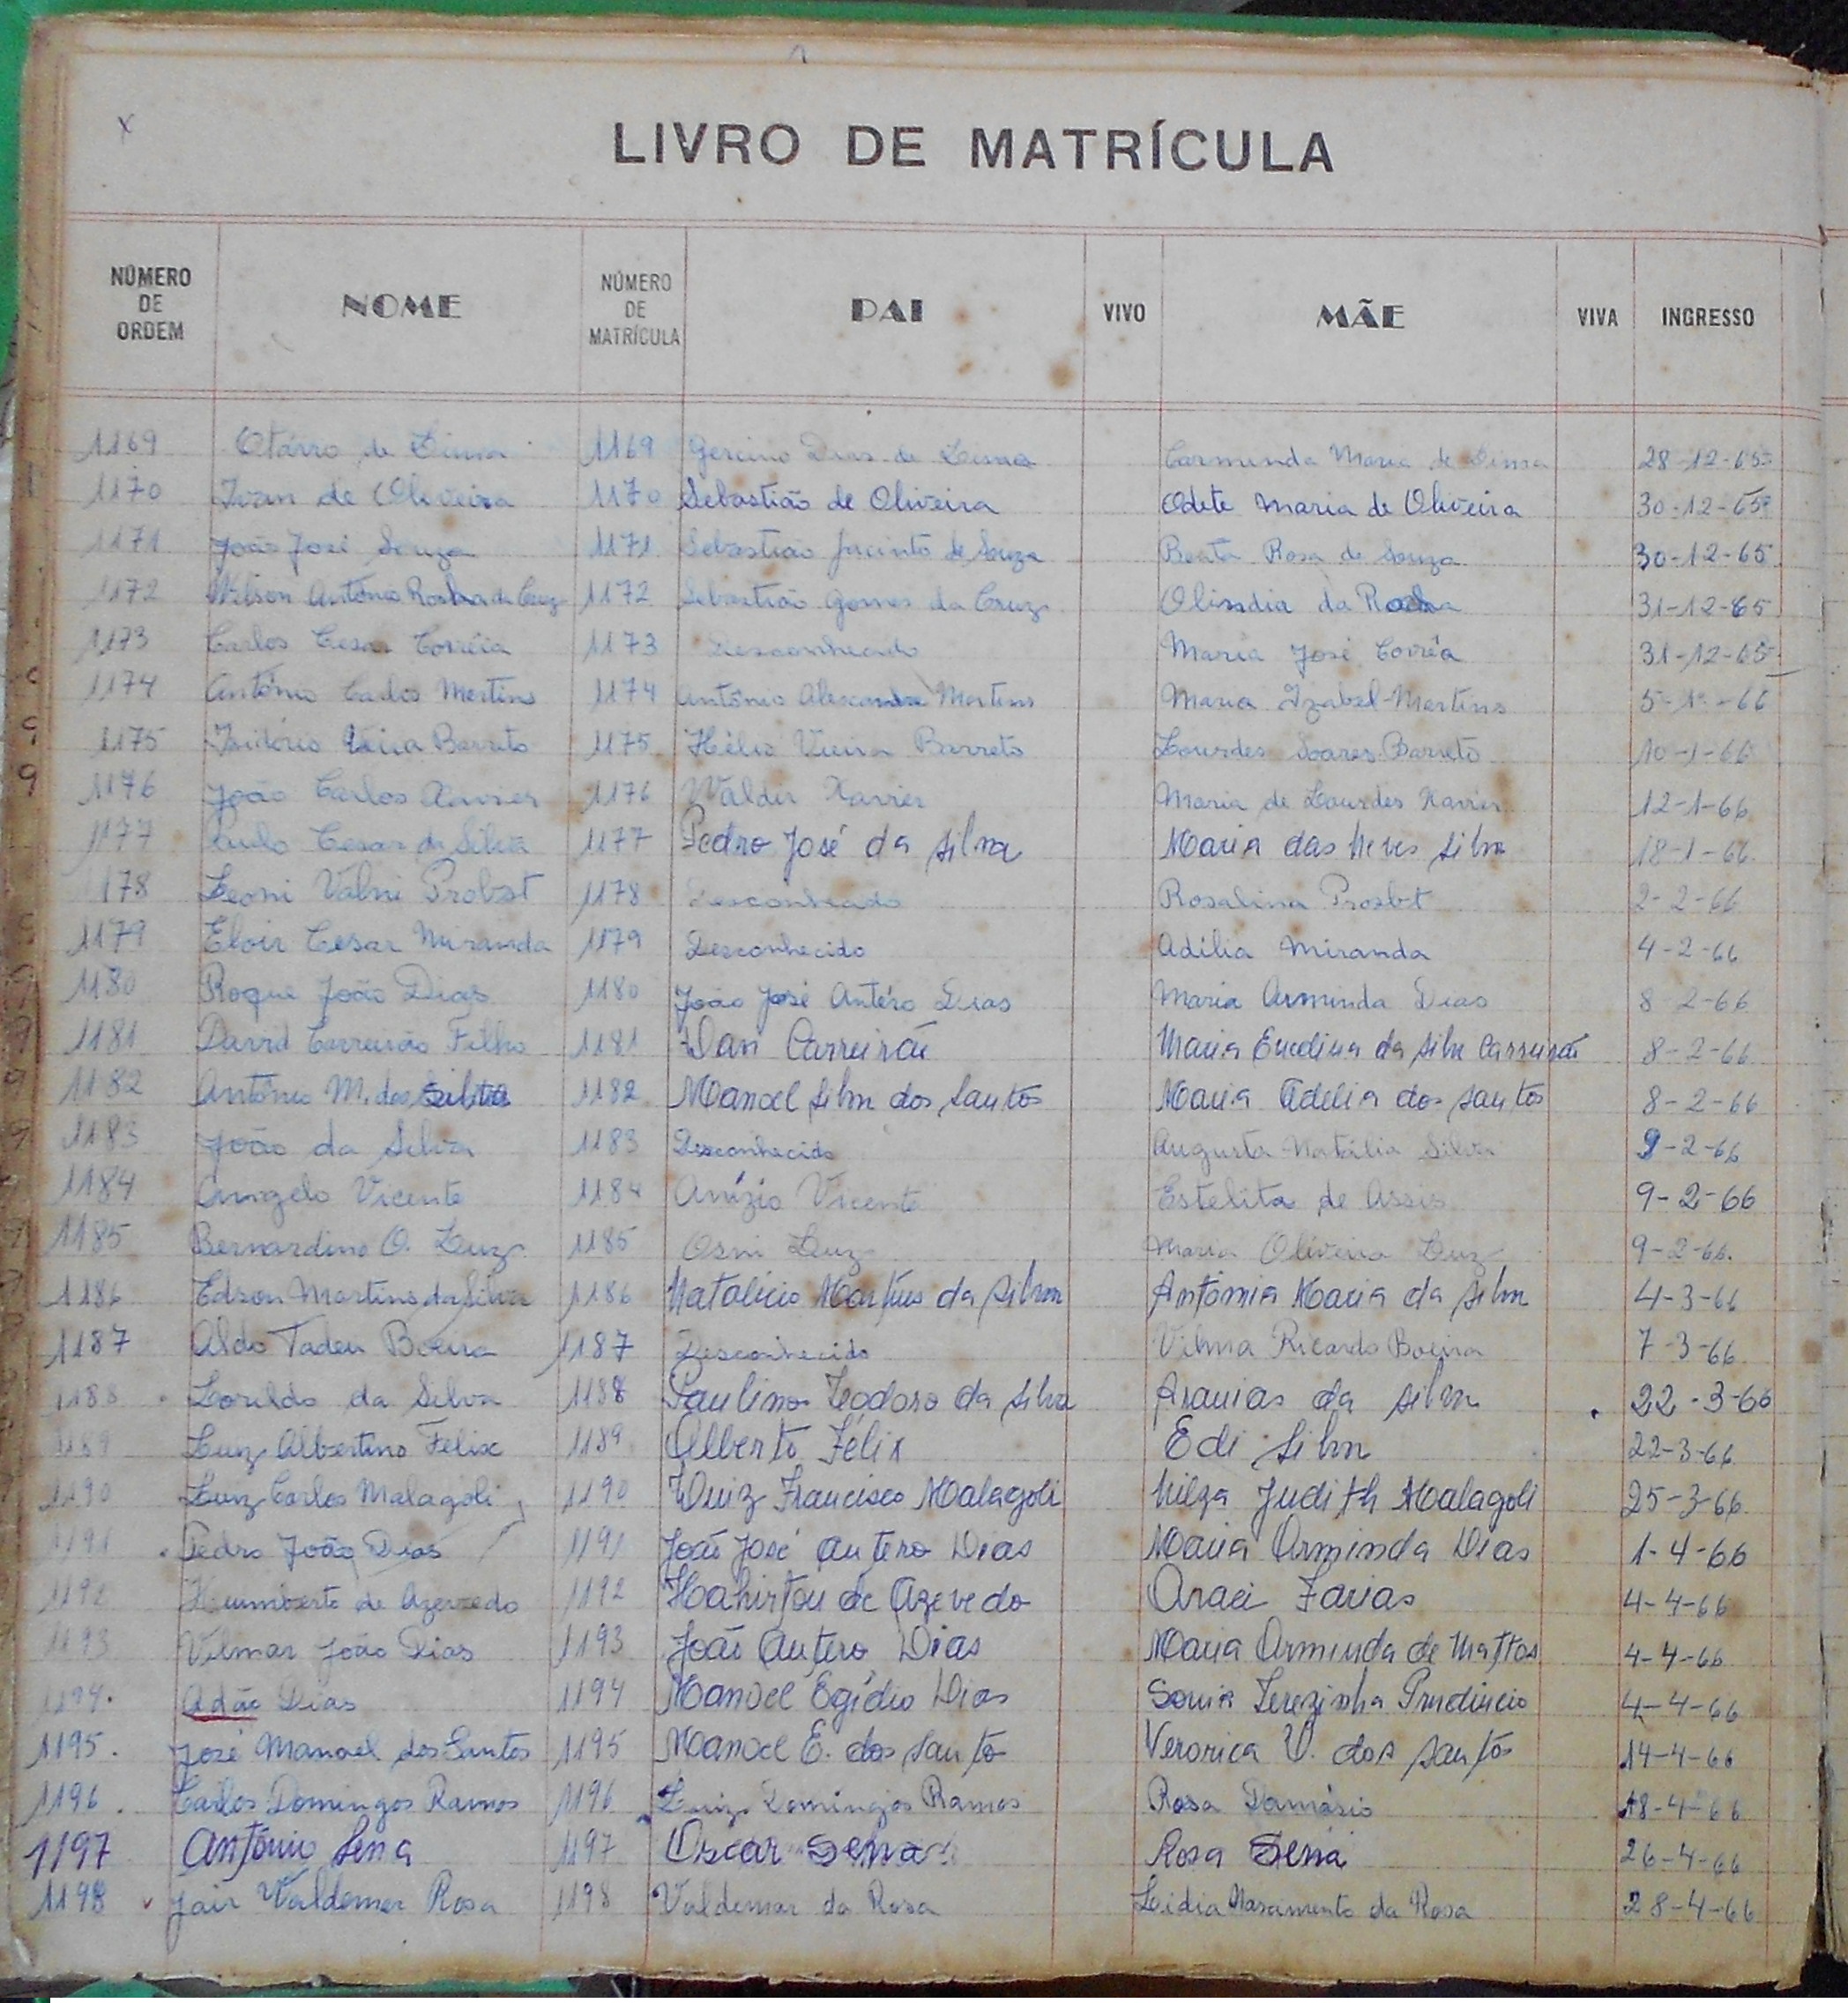 LIVRO DE MATRÍCULA
NÚMERO DE ORDEM NOME NÚMERO DE MATRÍCULA PAI VIVO MÃE VIVA INGRESSO
1169 Otávio de Lima 1169 Gercino Dias de Lima Carminda Maria de Lima 28-12-65
1170 Ivan de Oliveira 1170 Sebastião de Oliveira Odete Maria de Oliveira 30-12-65
1171 João José Souza 1171 Sebastião Jacinto de Souza Benta Rosa de Souza 30-12-65
1172 Wilson Antônio Rocha da Cruz 1172 Sebastião Gomes da Cruz Olindia da Rocha 31-12-65
1173 Carlos Cesar Corrêia 1173 Desconhecido Maria José Corrêa 31-12-65
1174 Antônio Carlos Martins 1174 Antônio Alexandre Martins Maria Izabel Martins 5-1-66
1175 Isidório Vieira Barreto 1175 Hélio Vieira Barreto Lourdes Soares Barreto 10-1-66
1176 João Carlos Xavier 1176 Waldir Xavier Maria de Lourdes Xavier 12-1-66
1177 Paulo Cesar da Silva 1177 Pedro José da Silva Maria das Neves Silva 18-1-66
1178 Leoni Valni Probst 1178 Desconhecido Rosalina Prosbt 2-2-66
1179 Eloir Cesar Miranda 1179 Desconhecido Adília Miranda 4-2-66
1180 Roque João Dias 1180 João José Antéro Dias Maria Arminda Dias 8-2-66
1181 David Carreirão Filho 1181 Davi Carreirão Maria Eucdina da Silva Carreirão 8-2-66
1182 Antônio M. dos Silva 1182 Manoel Silva dos Santos Maria Adelia dos Santos 8-2-66
1183 João da Silva 1183 Desconhecido Augusta Natália Silva 9-2-66
1184 Angelo Vicente 1184 Anízio Vicente Estelita de Assis 9-2-66
1185 Bernardino O. Luz 1185 Osni Luz Maria Oliveira Luz 9-2-66.
1186 Edson Martins da Silva 1186 Natalicio Martins da Silva Antônia Maria da Silva 4-3-66
1187 Aldo Tadeu Boeira 1187 Desconhecido Vilma Ricardo Boeira 7-3-66
1188 Lorildo da Silva 1188 Paulino Teodoro da Silva Aranias da Silva 22-3-66
1189 Luiz Albertino Felix 1189 Alberto Félix Edi Silva 22-3-66
1190 Luiz Carlos Malagoli 1190 Luiz Francisco Malagoli Nilza Judith Malagoli 25-3-66
1191 Pedro João Dias 1191 João José Antero Dias Maria Arminda Dias 1-4-66
1192 Humberto de Azevedo 1192 de Azevedo Araci Farias 4-4-66
1193 Vilmar João Dias 1193 João Antero Dias Maria Arminda de Mattos 4-4-66
1194. Adão Dias 1194 Manoel Egídio Dias Sonia Terezinha Prudêncio 4-4-66
1195. José Manoel dos Santos 1195 Manoel E. dos Santos Veronica V. dos Santos 14-4-66
1196. Carlos Domingos Ramos 1196 Luiz Domingos Ramos Rosa Damásio 18-4-66
1197 Antônio Sena 1197 Oscar Sena Rosa Sena 26-4-66
1198 Jair Valdemar Rosa 1198 Valdemar da Rosa Lidia Nascimento da Rosa 28-4-66